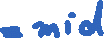 = mid